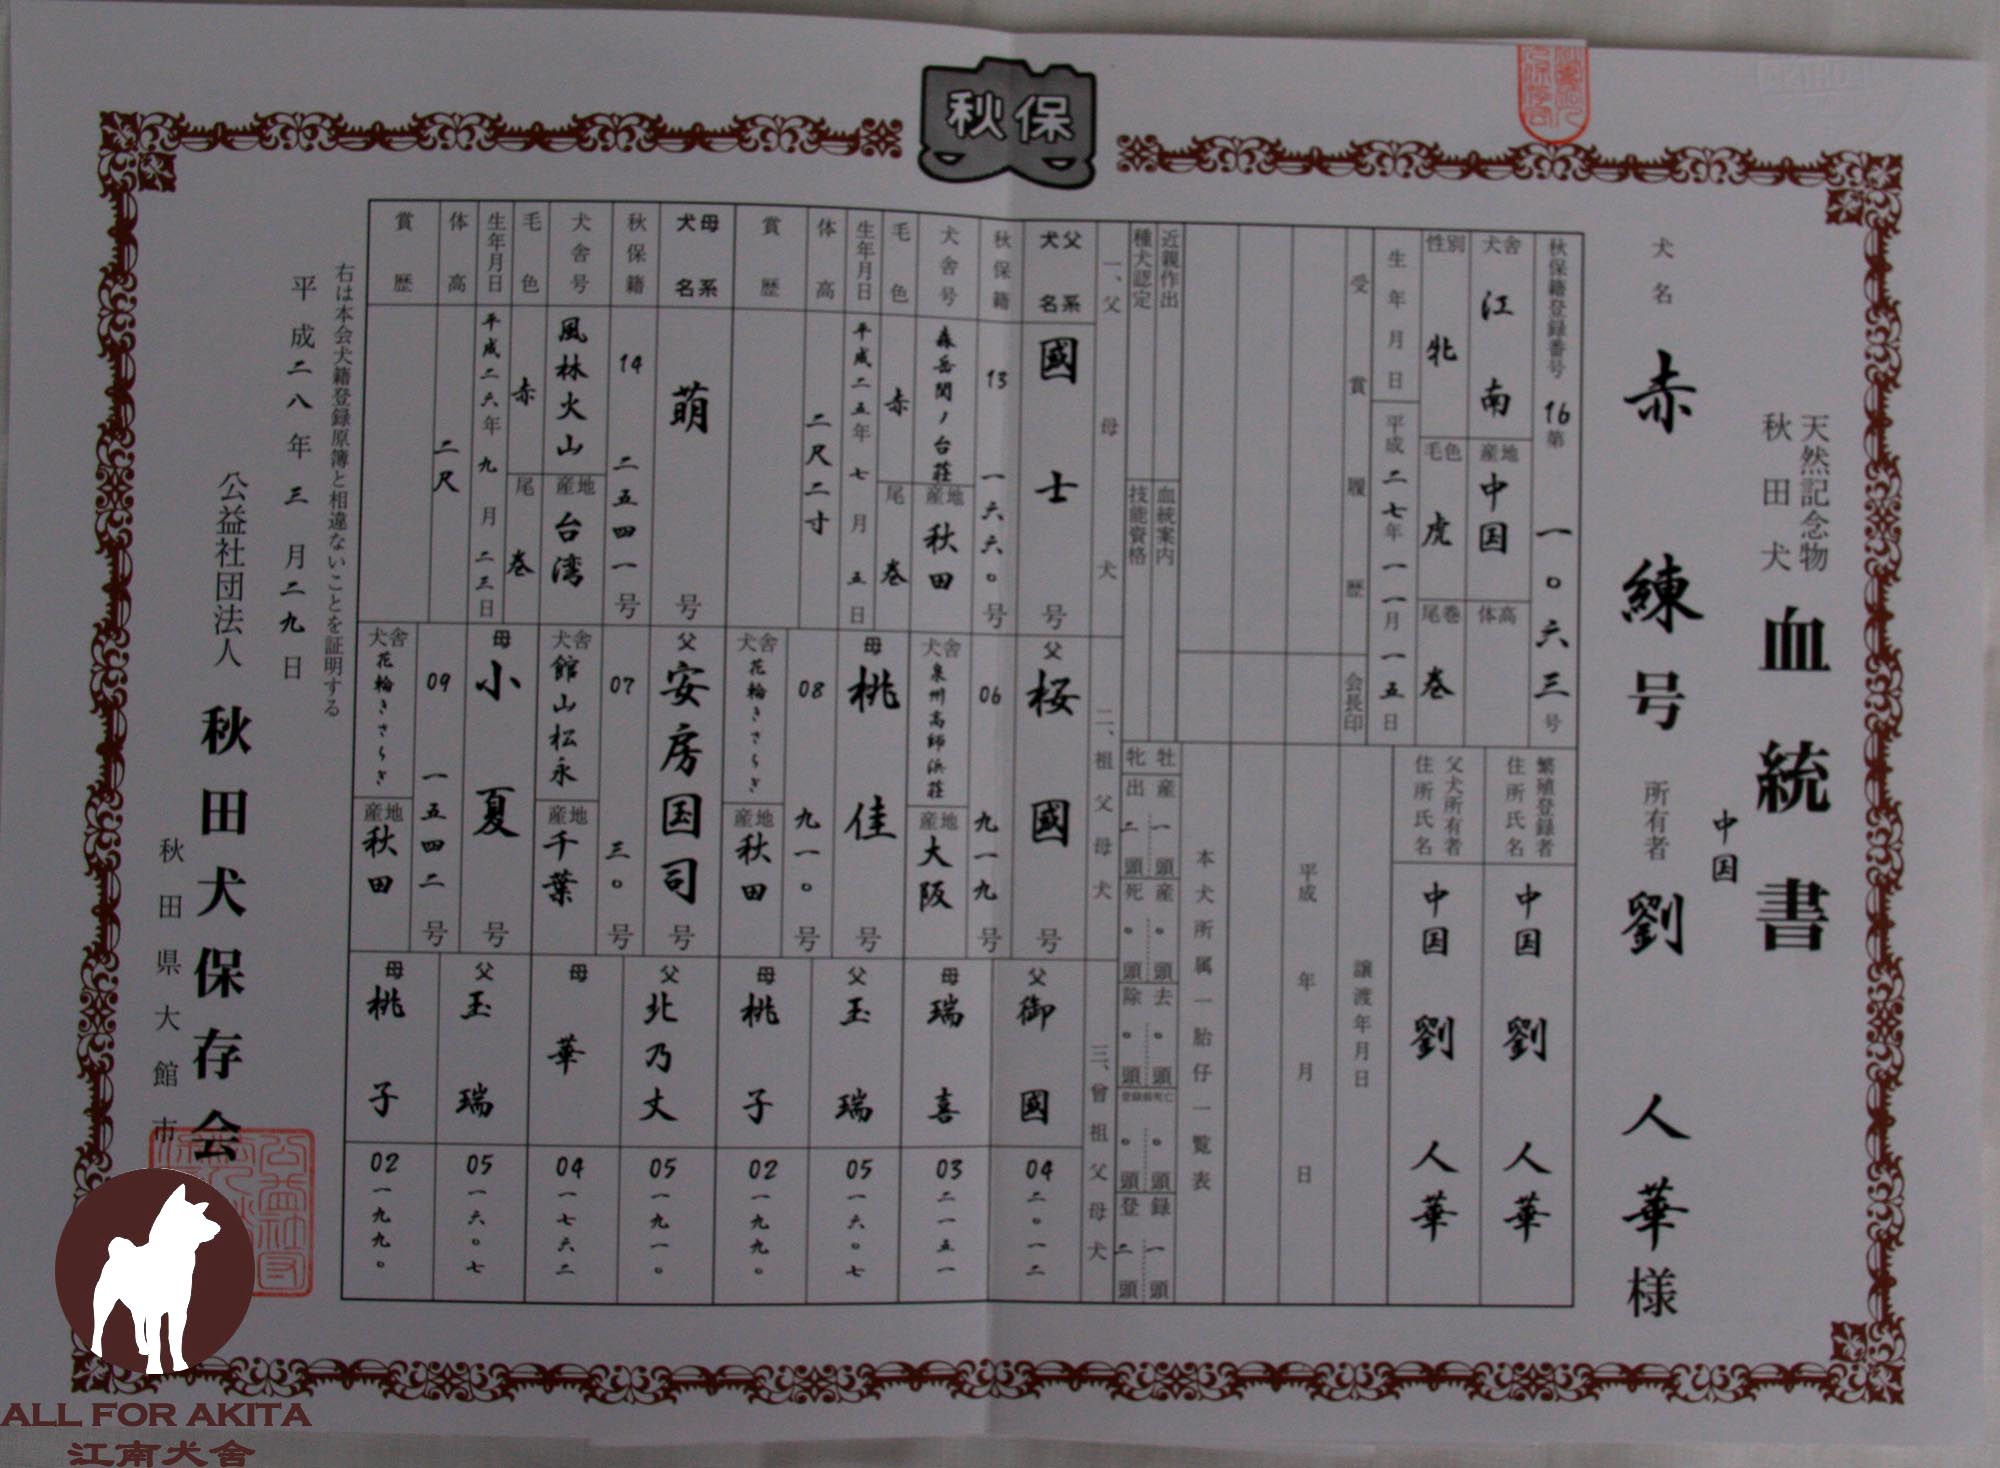 秋保
天然記念物
秋田犬
血統書
犬名
赤練号
所有者
中国
劉人華様
秋保籍登録番号
16第一〇六三号
犬舎
江南
産地
中国
体高
性別
牝
毛色
虎
尾巻
巻
生年月日
平成二七年一一月一五日
受賞履歴
会長印
繁殖登録者
住所氏名
中国
劉人華
父犬所有者
住所氏名
中国
劉人華
譲渡年月日
平成年月日
本犬所属一胎仔一覧表
近親作出
種犬認定
血統案内
技能資格
牡
牝
産出
一頭
二頭
死産
〇頭
〇頭
除去
〇頭
〇頭
登録前死亡
〇頭
〇頭
登録
一頭
二頭
一、父母犬
二、祖父母犬
三、曾祖父母犬
父系
犬名
國士号
秋保籍
13一六六〇号
犬舎号
森岳関ノ台荘
産地
秋田
毛色
赤
尾
巻
生年月日
平成二五年七月五日
体高
二尺二寸
賞歴
母系
犬名
萌号
秋保籍
14二五四一号
犬舎号
風林火山
産地
台湾
毛色
赤
尾
巻
生年月日
平成二六年九月二三日
体高
二尺
賞歴
父
桜國号
06九一九号
犬舎
泉州高師浜荘
産地
大阪
母
桃佳号
08九一〇号
犬舎
花輪きさらぎ
産地
秋田
父
安房国司号
07三〇号
犬舎
館山松永
産地
千葉
母
小夏号
09一五四二号
犬舎
花輪きさらぎ
産地
秋田
父
御國
04二〇一二
母
瑞喜
03二一五一
父
玉瑞
05一六〇七
母
桃子
02一九九〇
父
北乃丈
05一九一〇
母
華
04一七六二
父
玉瑞
05一六〇七
母
桃子
02一九九〇
右は本会犬籍登録原簿と相違ないことを証明する
平成二八年三月二九日
公益社団法人 秋田犬保存会
秋田県大館市
ALL FOR AKITA
江南犬舍